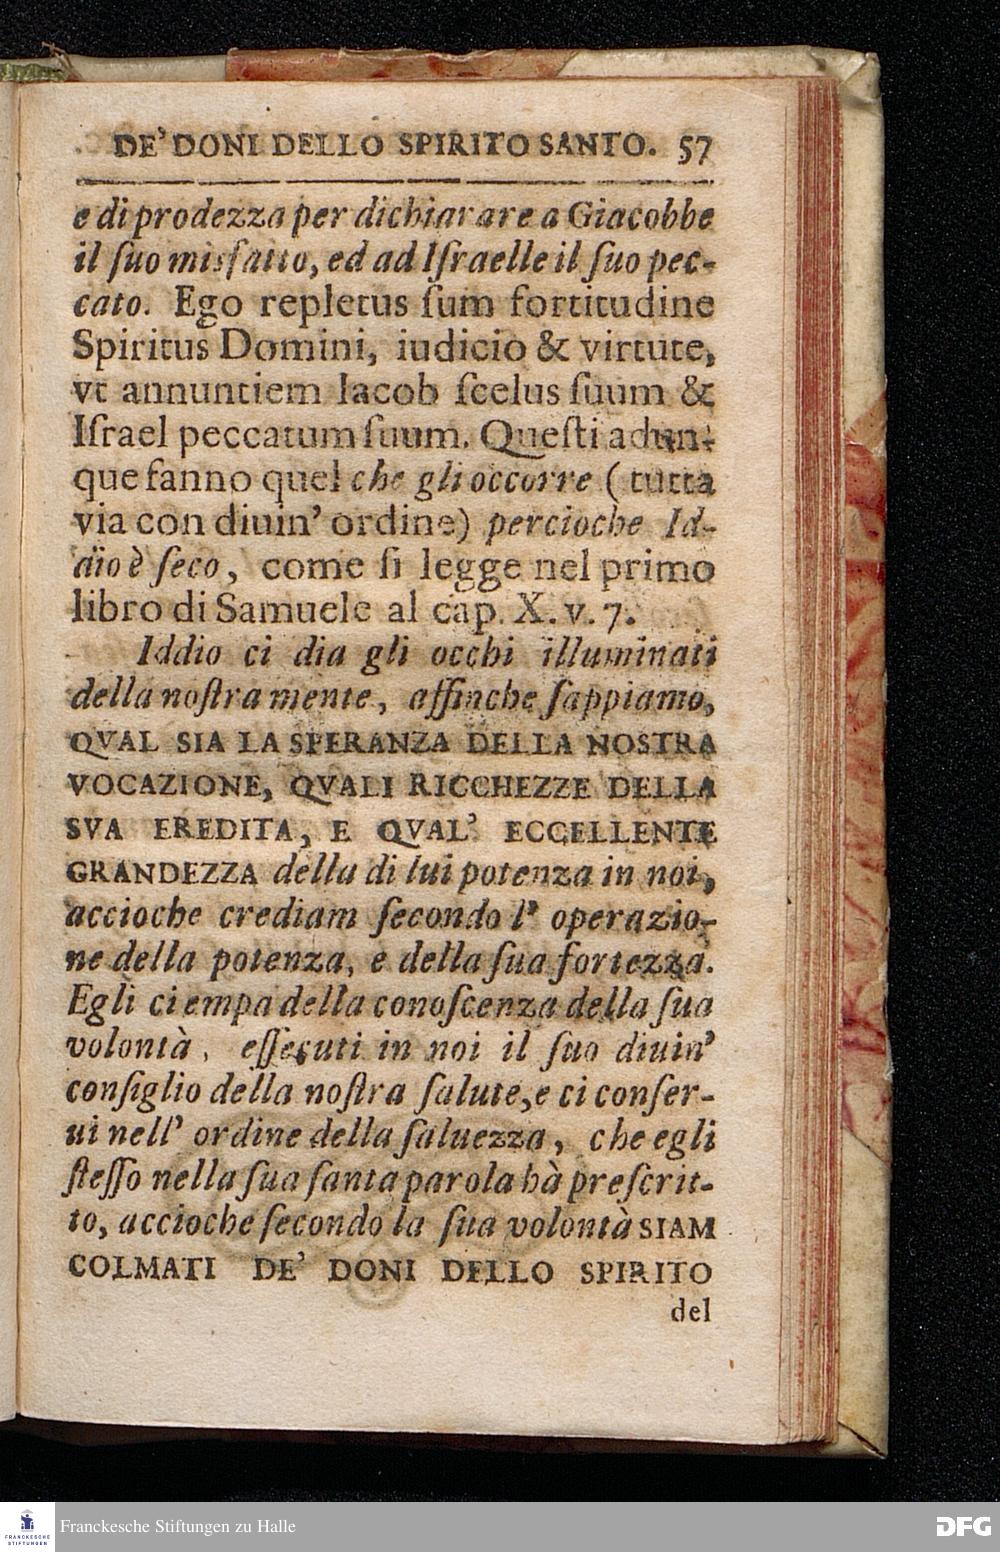 DE' DONI DELLO SPIRITO SANTO. 57
e di prodezza per dichiarare a Giacobbe
il ſuo misfatto, ed ad Iſraelle il ſuo pec-
cato. Ego repletus ſum fortitudine
Spiritus Domini, iudicio & virtute,
vt annuntiem Iacob ſcelus ſuum &
Iſrael peccatum ſuum. Queſti adun-
que fanno quel che gli occorre (tutta
via con diuin' ordine) percioche Id-
dio è ſeco, come ſi legge nel primo
libro di Samuele al cap. X. v. 7.
Iddio ci dia gli occhi illuminati
della noſtra mente, affinche ſappiamo,
QVAL SIA LA SPERANZA DELLA NOSTRA
VOCAZIONE, QVALI RICCHEZZE DELLA
SVA EREDITA, E QVAL' ECCELLENTE
GRANDEZZA della di lui potenza in noi,
accioche crediam ſecondo l' operazio-
ne della potenza, e della ſua fortezza.
Egli ci empa della conoſcenza della ſua
volontà, eſſecuti in noi il ſuo diuin'
conſiglio della noſtra ſalute, e ci conſer-
ui nell' ordine della ſaluezza, che egli
ſteſſo nella ſua ſanta parola hà preſcrit-
to, accioche ſecondo la ſua volontà SIAM
COLMATI DE' DONI DELLO SPIRITO
del
FRANCKESCHE
STIFTUNGEN
Franckesche Stiftungen zu Halle
DFG